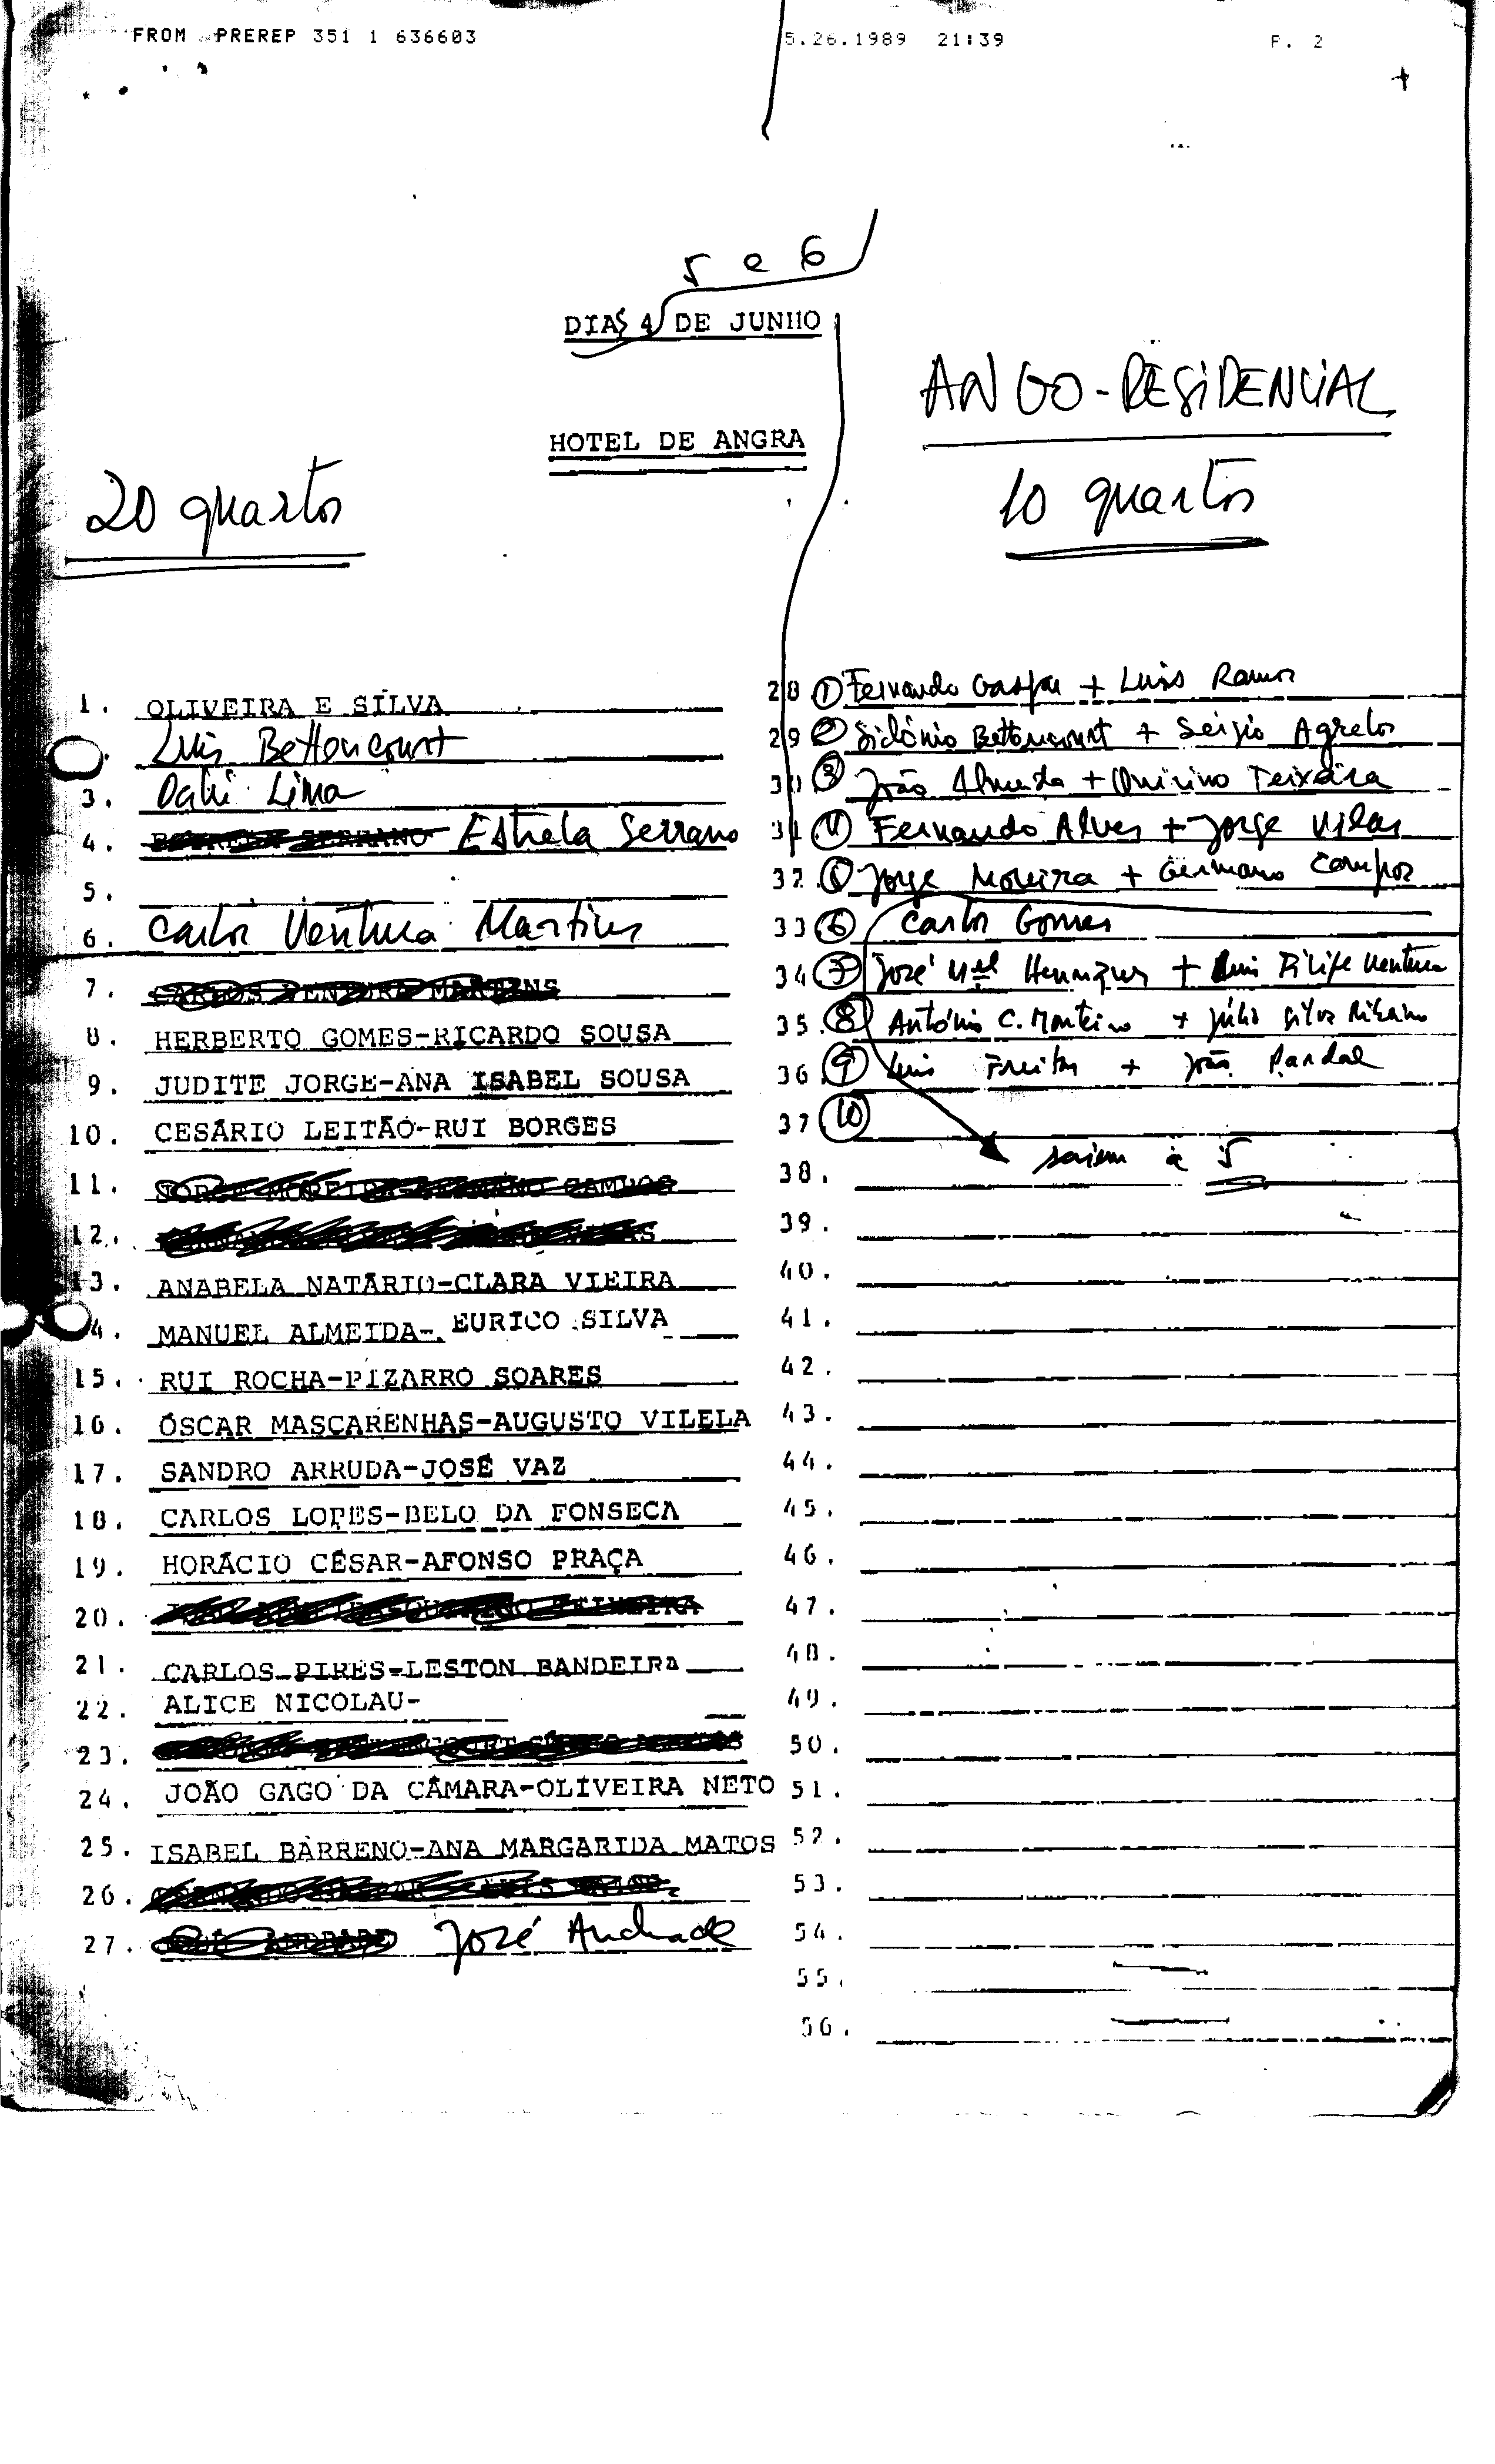 FROM PREREP 351 1 636603 5.26.1989 21:39 P. 2
5 e 6
DIAS 4 DE JUNHO
HOTEL DE ANGRA
20 quartos
ANGO-RESIDENCIAL
10 quartos
1. OLIVEIRA E SILVA
Luis Bettencourt
3. Lima
4. Estrela Serrano
5.
6. Carlos Ventura Martins
7. CARLOS VENTURA MARTINS
8. HERBERTO GOMES-RICARDO SOUSA
9. JUDITE JORGE-ANA ISABEL SOUSA
10. CESÁRIO LEITÃO-RUI BORGES
11.
12.
13. ANABELA NATÁRIO-CLARA VIEIRA
4. MANUEL ALMEIDA- EURICO SILVA
15. RUI ROCHA-PIZARRO SOARES
16. ÓSCAR MASCARENHAS-AUGUSTO VILELA
17. SANDRO ARRUDA-JOSÉ VAZ
18. CARLOS LOPES-BELO DA FONSECA
19. HORÁCIO CÉSAR-AFONSO PRAÇA
20.
21. CARLOS PIRES-LESTON BANDEIRA
22. ALICE NICOLAU-
23.
24. JOÃO GAGO DA CÂMARA-OLIVEIRA NETO
25. ISABEL BARRENO-ANA MARGARIDA MATOS
26.
27. José Andrade
28 1 Fernando Gaspar + Luis Ramos
29 2 Sidónio Bettencourt + Sérgio Agrelos
30 3 João Almeida + Quirino Teixeira
31 4 Fernando Alves + Jorge Vilas
32. 5 Jorge Moreira + Germano Campos
33 6 Carlos Gomes
34 7 José Mel Henriques + Luis Filipe Ventura
35. 8 António C. Monteiro + Júlio Silva Ribeiro
36 9 Luis Freitas + João Pardal
37 10
38. saiem a 5
39.
40.
41.
42.
43.
44.
45.
46.
47.
48.
49.
50.
51.
52.
53.
54.
55.
56.